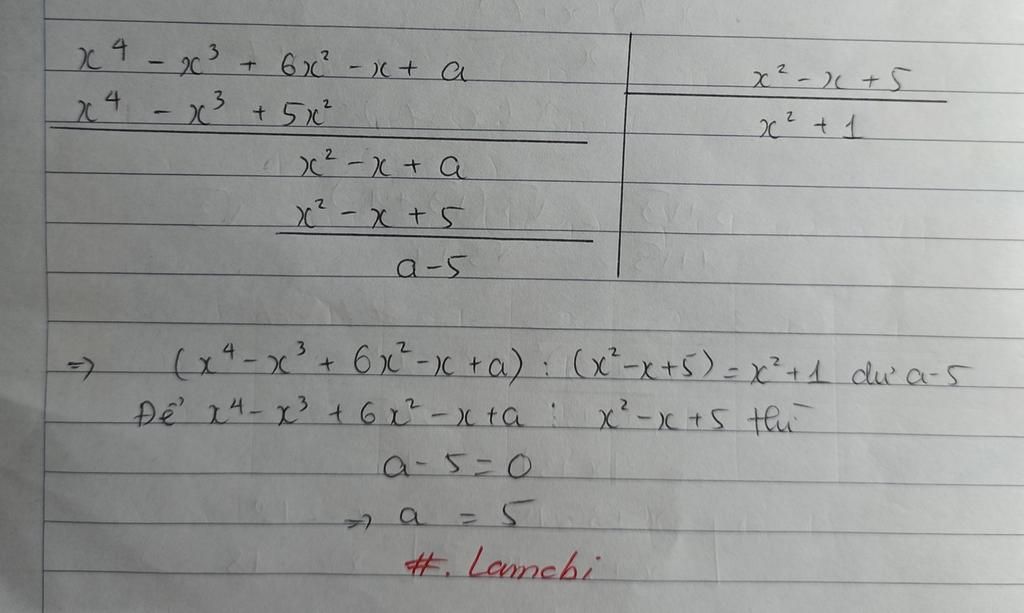 x⁴ - x³ + 6x² - x + a
x² - x + 5
x⁴ - x³ + 5x²
x² + 1
x² - x + a
x² - x + 5
a - 5
=> (x⁴ - x³ + 6x² - x + a) : (x² - x + 5) = x² + 1 dư a - 5
Để x⁴ - x³ + 6x² - x + a ⋮ x² - x + 5 thì
a - 5 = 0
=> a = 5
#. Lamchi